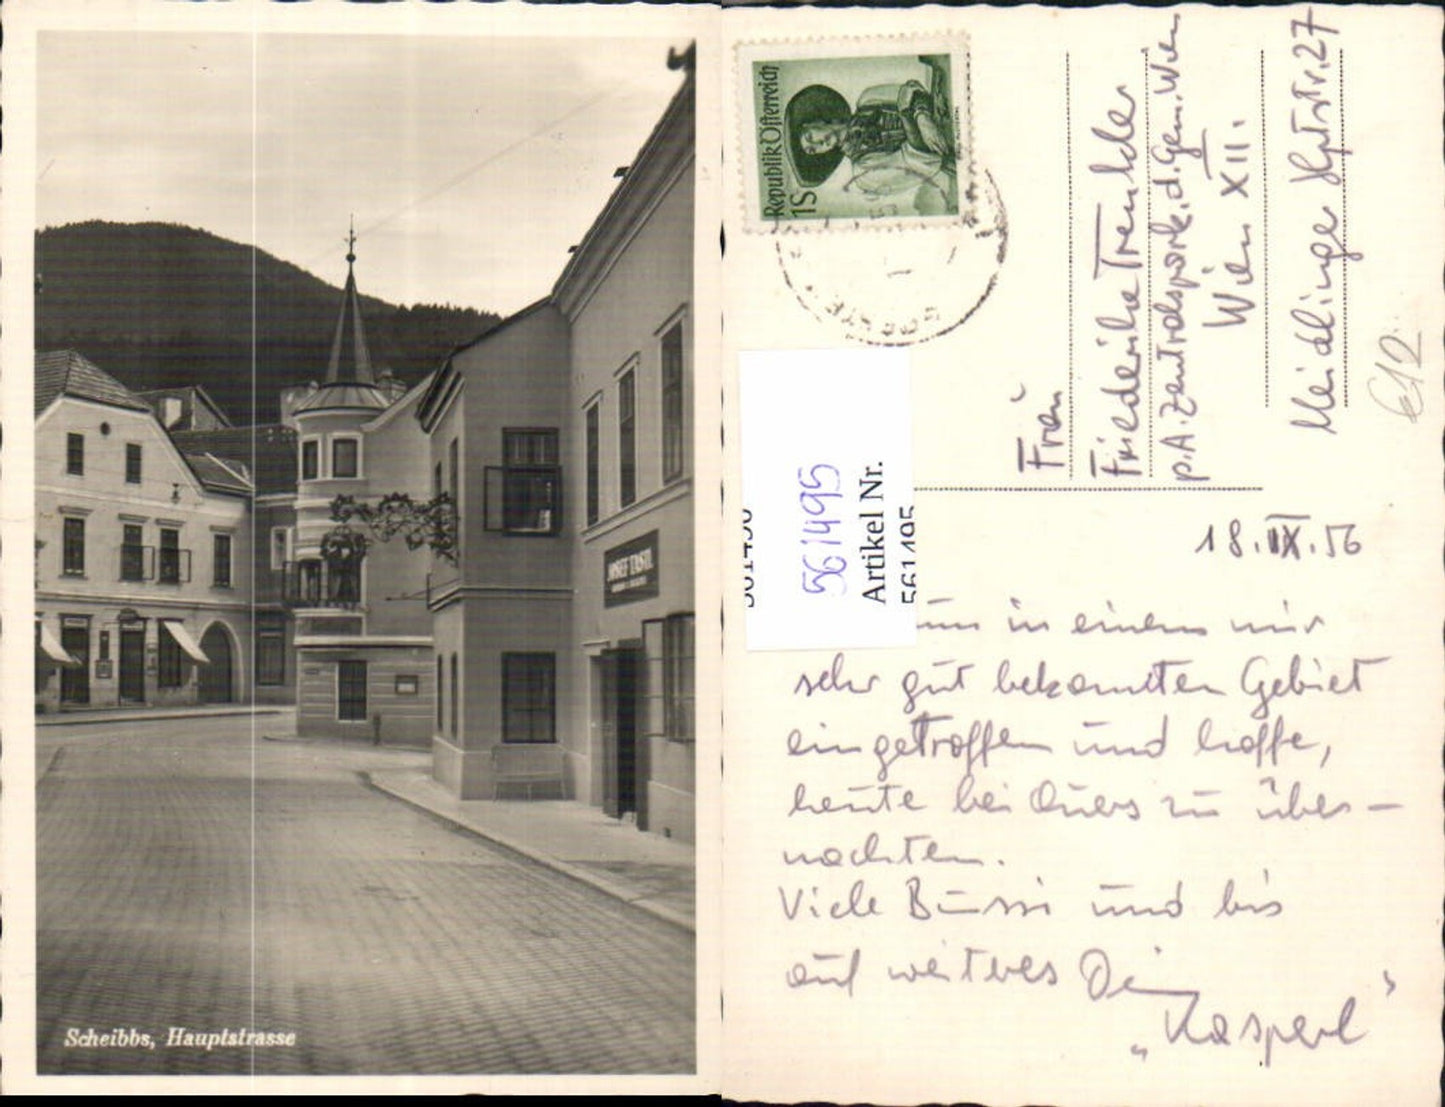 JOSEF TASTL
Scheibbs, Hauptstrasse
Republik Österreich
1S
Frau
Friederike Trenkler
p.A. Zentralspark. d. Gem. Wien
Wien XII.
Meidlinger Hptstr. 27
€12
561495
Artikel Nr.
561495
18.IX.56
in einem mir
sehr gut bekannten Gebiet
eingetroffen und hoffe,
heute bei Euers zu über-
nachten.
Viele Bussi und bis
auf weiteres Dein
„Kasperl"